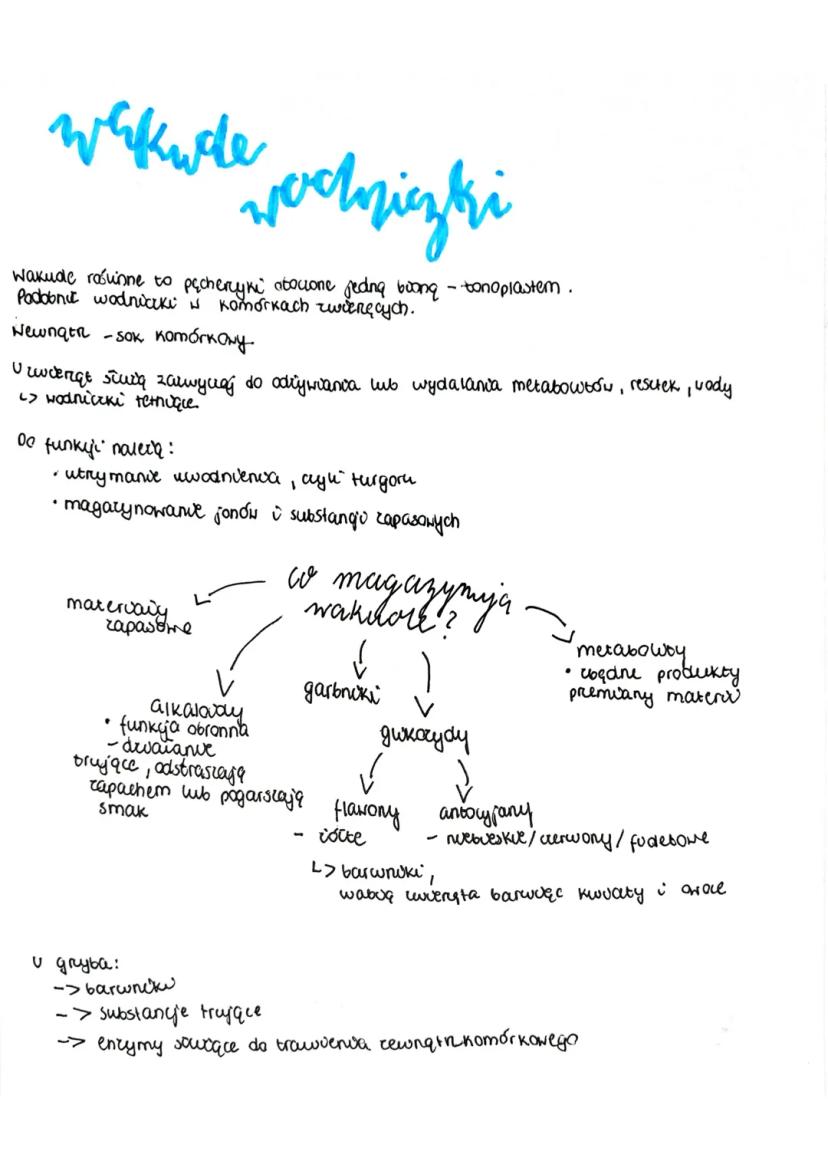 wakuole
wodniczki
Wakuole roślinne to pęcherzyki otoczone jedną błoną – tonoplastem.
Podobnie wodniczki w komórkach zwierzęcych.
Wewnątrz – sok komórkowy
U zwierząt służą zazwyczaj do odżywiania lub wydalania metabolitów, resztek, wody
↳ wodniczki tętniące
Do funkcji należą:
• utrzymanie uwodnienia, czyli turgoru
• magazynowanie jonów i substancji zapasowych
co magazynują
wakuole?
materiały
zapasowe
alkaloidy
• funkcja obronna
– działanie
trujące, odstraszają
zapachem lub pogarszają
smak
garbniki
glikozydy
flawony
– żółte
antocyjany
– niebieskie/czerwony/fioletowe
↳ barwniki,
wabią zwierzęta barwiąc kwiaty i owoce
metabolity
• zbędne produkty
przemiany materii
U grzyba:
-> barwniki
-> substancje trujące
-> enzymy służące do trawienia zewnątrzkomórkowego